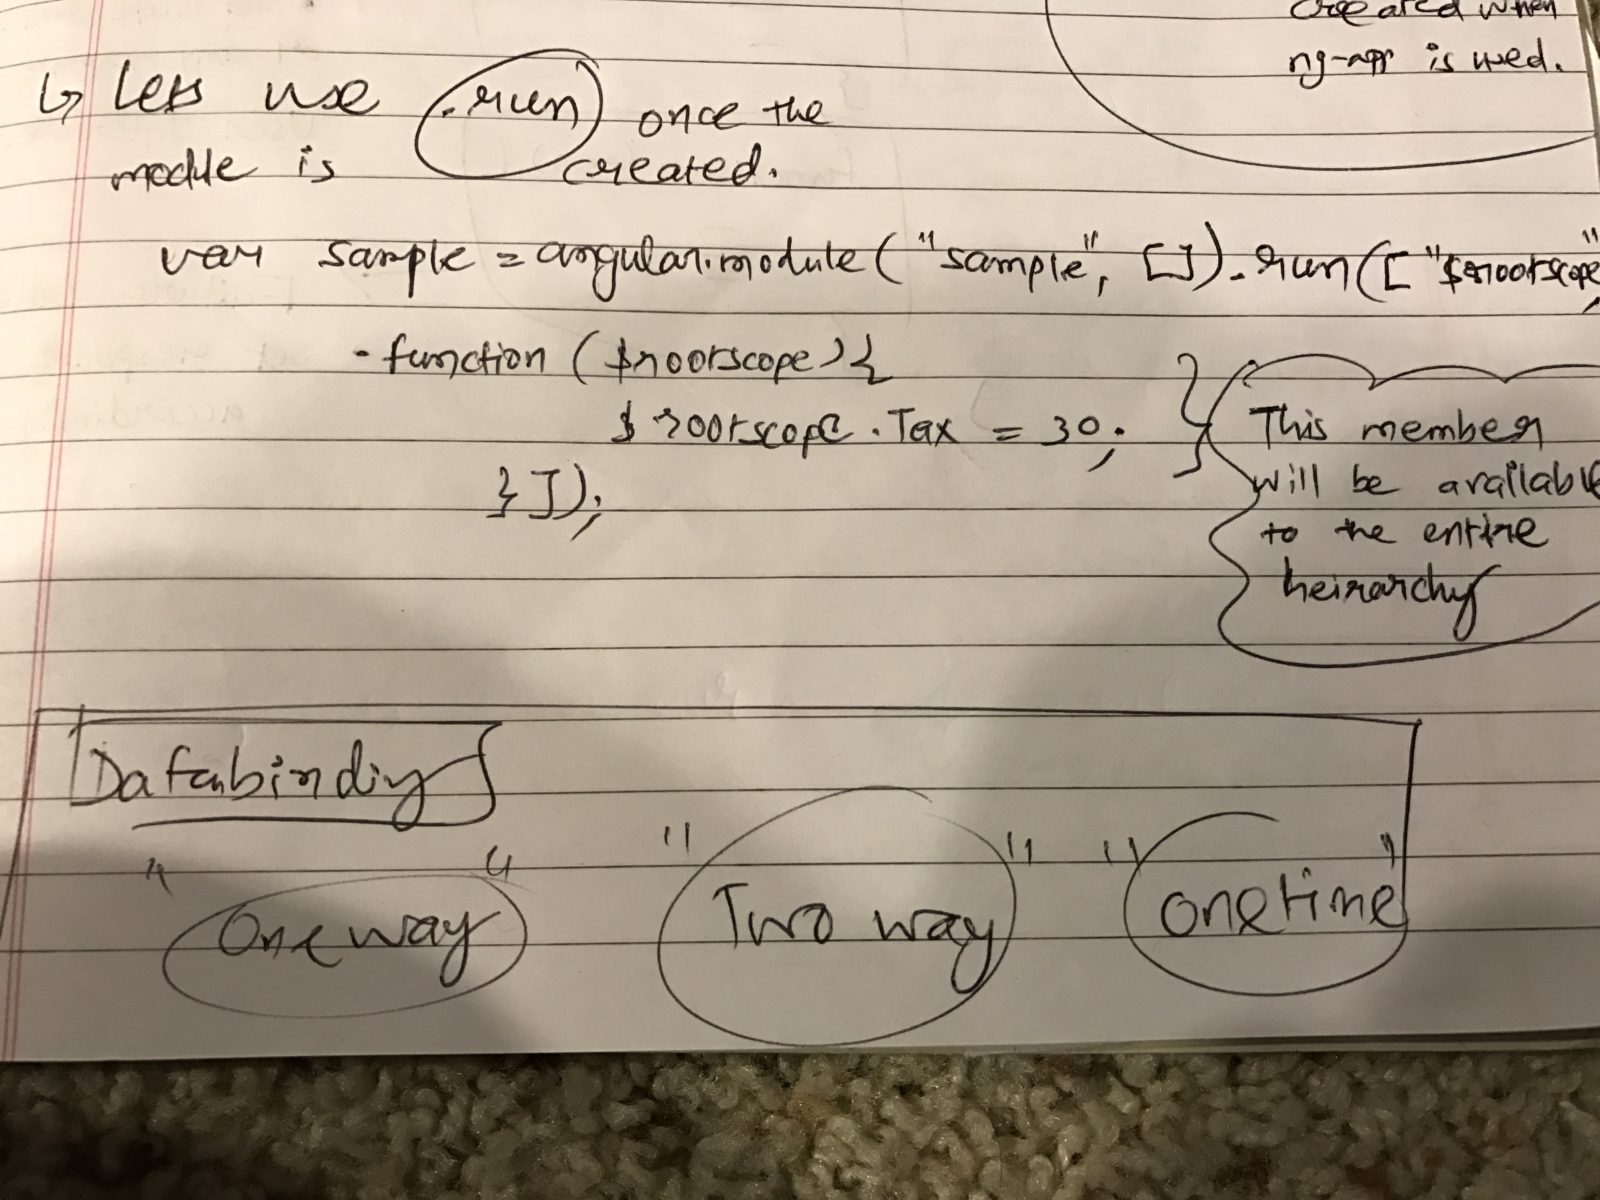 created when
ng-app is used.
↳ Lets use .run once the
module is created.
var sample = angular.module("sample", []).run(["$rootscope",
- function ($rootscope){
$rootscope.Tax = 30;
}]);
This member
will be available
to the entire
heirarchy
Databinding
"one way" "Two way" "onetime"